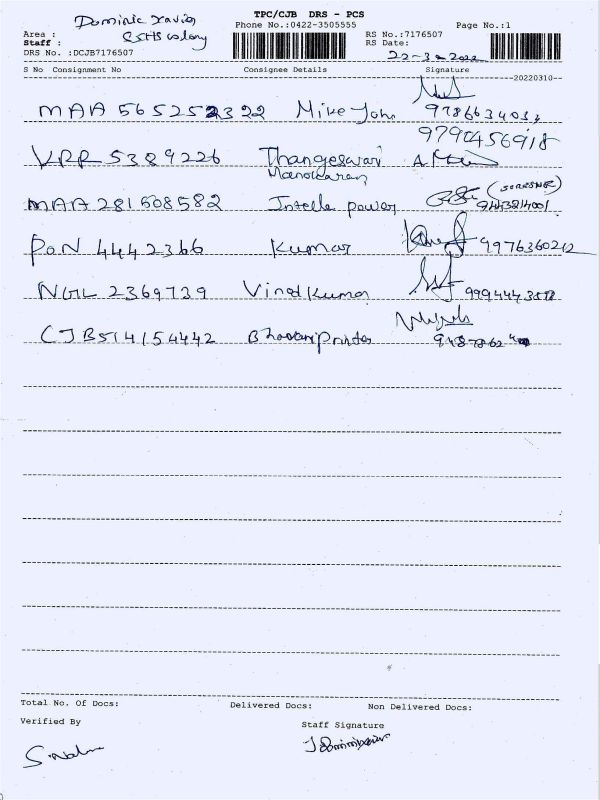 TPC/CJB DRS - PCS
Dominic Xavier
Phone No.:0422-3505555
Page No.:1
Area :
ESHS colony
RS No.:7176507
Staff :
RS Date:
22-3-2022
DRS No. :DCJB7176507
S No Consignment No Consignee Details Signature
--20220310--
MAA 565252322 Mike John
9790456918
VRR 5389226 Thangeswari
Manokaran
MAA 281508582 Intelle power (SURESHBE) 9443814001
PON 4442366 Kumar 9976360212
NGL 2369739 Vinod Kumar
CJB514154442
Total No. Of Docs: Delivered Docs: Non Delivered Docs:
Verified By
Staff Signature